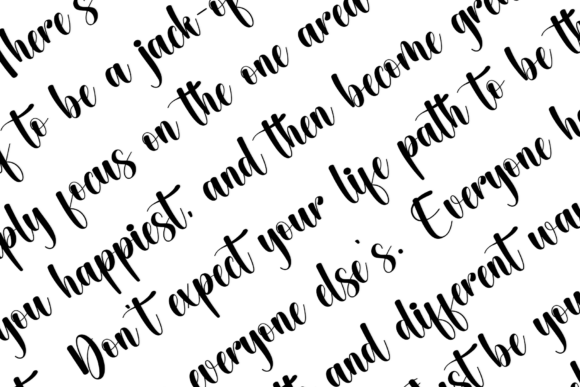 There's
to be a jack-of
focus on the one area
you happiest, and then become
Don't expect your life path to be
everyone else's. Everyone
and different
be you